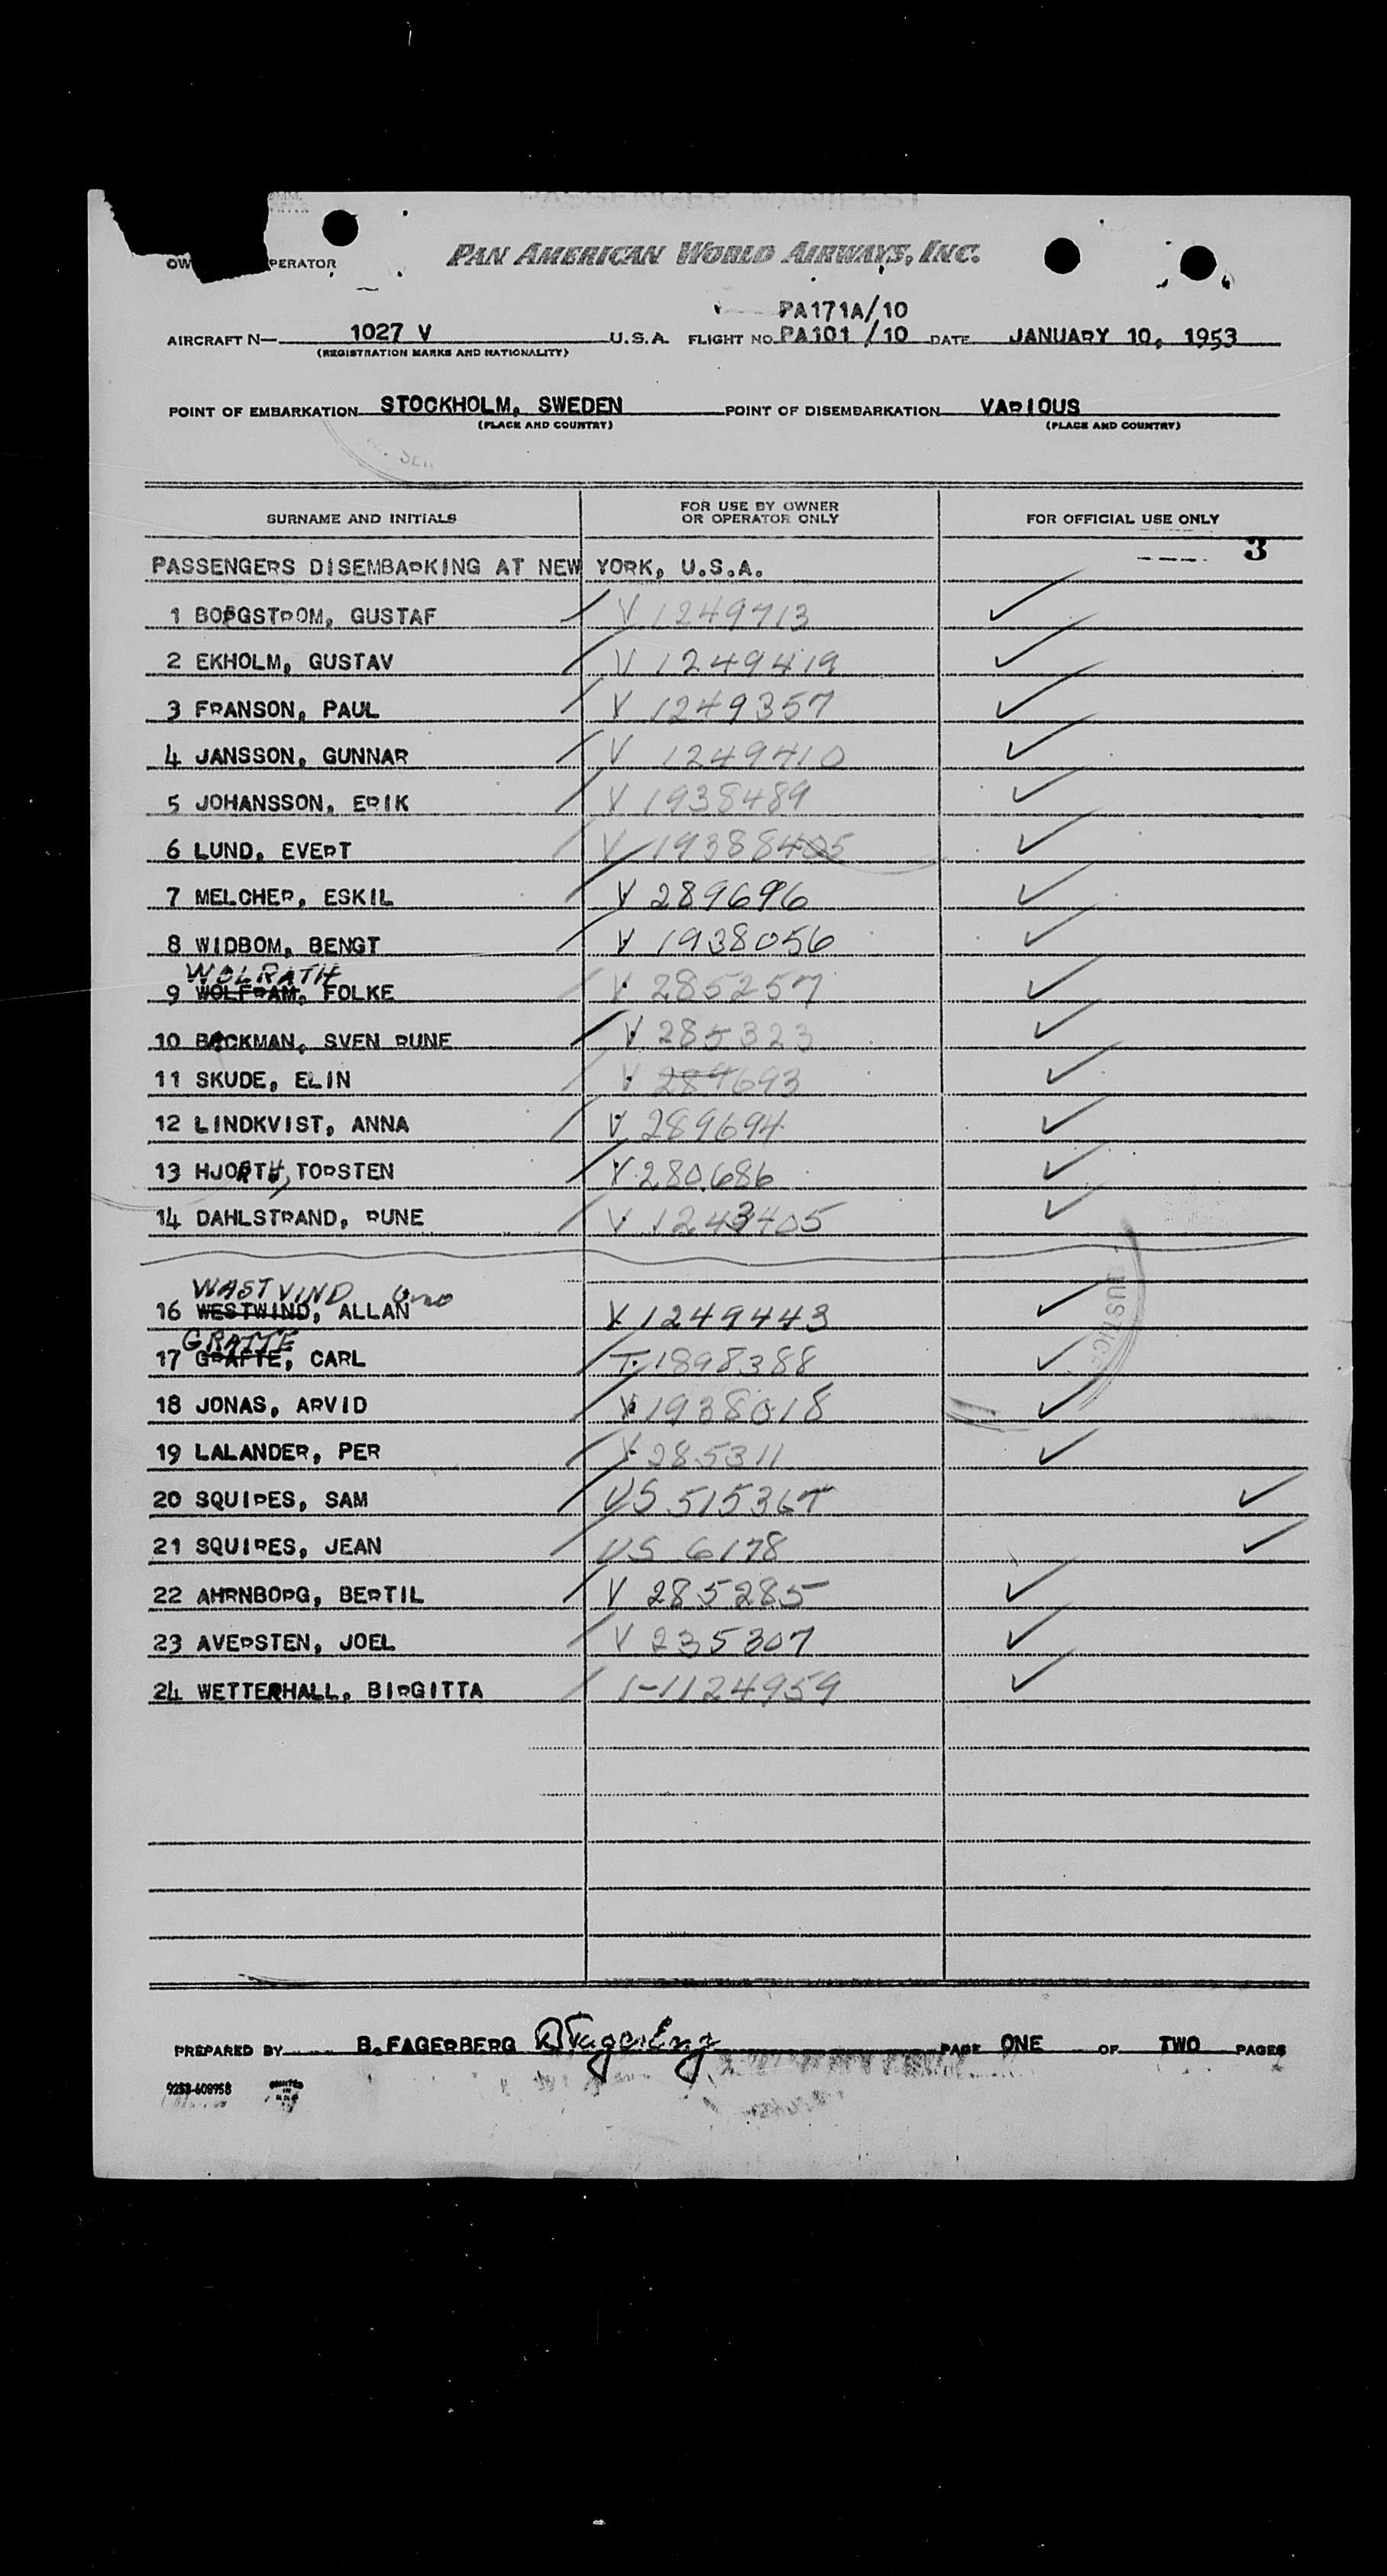 OW PERATOR
PAN AMERICAN WORLD AIRWAYS, INC.
PA171A/10
AIRCRAFT N— 1027 V U.S.A. FLIGHT NO. PA101 /10 DATE JANUARY 10, 1953
(REGISTRATION MARKS AND NATIONALITY)
POINT OF EMBARKATION STOCKHOLM, SWEDEN POINT OF DISEMBARKATION VARIOUS
(PLACE AND COUNTRY) (PLACE AND COUNTRY)
SURNAME AND INITIALS FOR USE BY OWNER OR OPERATOR ONLY FOR OFFICIAL USE ONLY
3
PASSENGERS DISEMBARKING AT NEW YORK, U.S.A.
1 BORGSTROM, GUSTAF V 1249713
2 EKHOLM, GUSTAV V 1249419
3 FRANSON, PAUL V 1249357
4 JANSSON, GUNNAR V 1249410
5 JOHANSSON, ERIK V 1938489
6 LUND, EVERT V 19388405
7 MELCHER, ESKIL V 289696
8 WIDBOM, BENGT V 1938056
WOLRATH
9 WOLFRAM, FOLKE V 285257
10 BACKMAN, SVEN RUNE V 285323
11 SKUDE, ELIN V 289693
12 LINDKVIST, ANNA V 289694
13 HJORTH, TORSTEN V 280686
14 DAHLSTRAND, RUNE V 1243405
WASTVIND
16 WESTWIND, ALLAN V 1249443
GRATTE
17 GRAFTE, CARL T. 1898388
18 JONAS, ARVID V 1938018
19 LALANDER, PER V 285311
20 SQUIRES, SAM US 515367
21 SQUIRES, JEAN US 6178
22 AHRNBORG, BERTIL V 285285
23 AVERSTEN, JOEL V 235307
24 WETTERHALL, BIRGITTA 1-1124959
PREPARED BY B. FAGERBERG PAGE ONE OF TWO PAGES
9253-609958 PRINTED IN U.S.A.